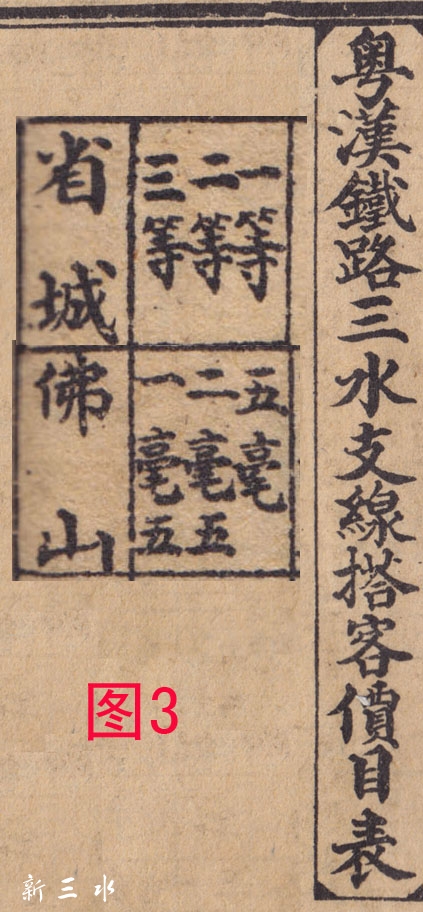 粵漢鐵路三水支線搭客價目表
一等
二等
三等
省城
五毫
二毫五
一毫五
佛山
图3
新三水